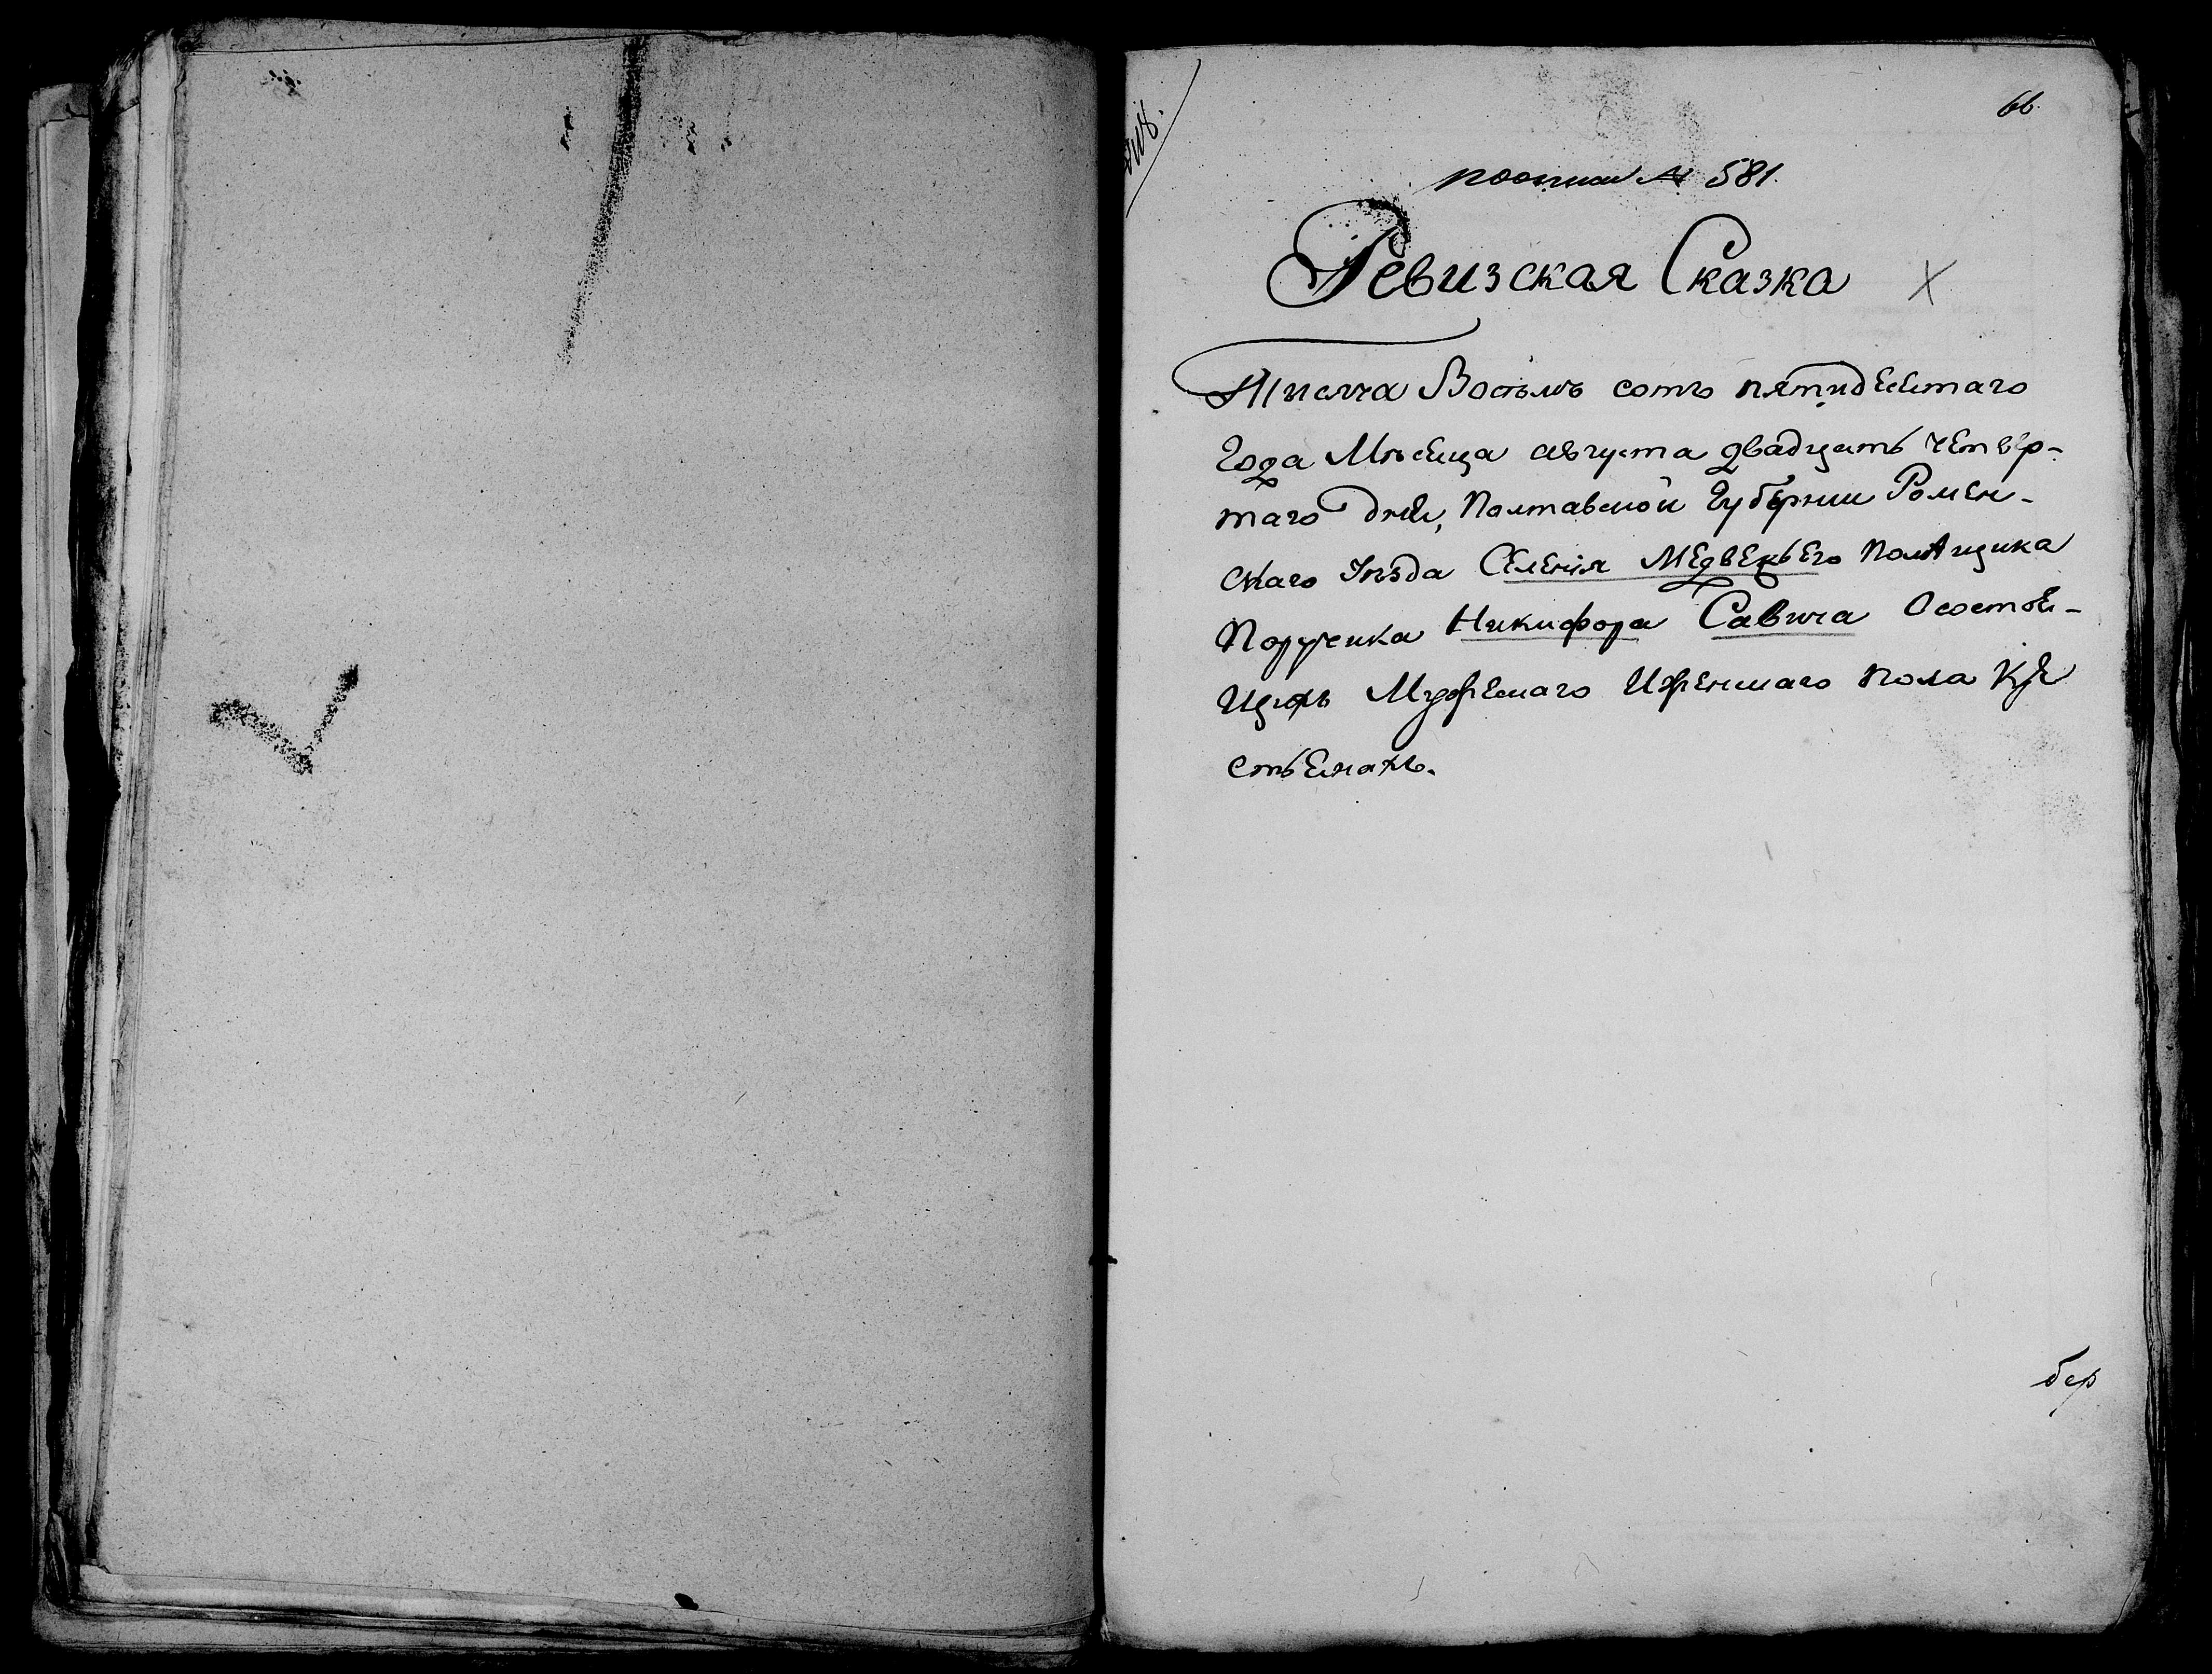 66.
№ 581.
Ревизская Сказка
Тысяча Восемь сотъ пятидесятаго
Года Мѣсяца августа двадцать четвер-
таго дня, Полтавской Губернии Ромен-
скаго Уѣзда Селенія Медвежьего Помѣщика
Порутчика Никифора Савича О состоя-
щихъ Мужескаго И женскаго пола Кре
стьянахъ.